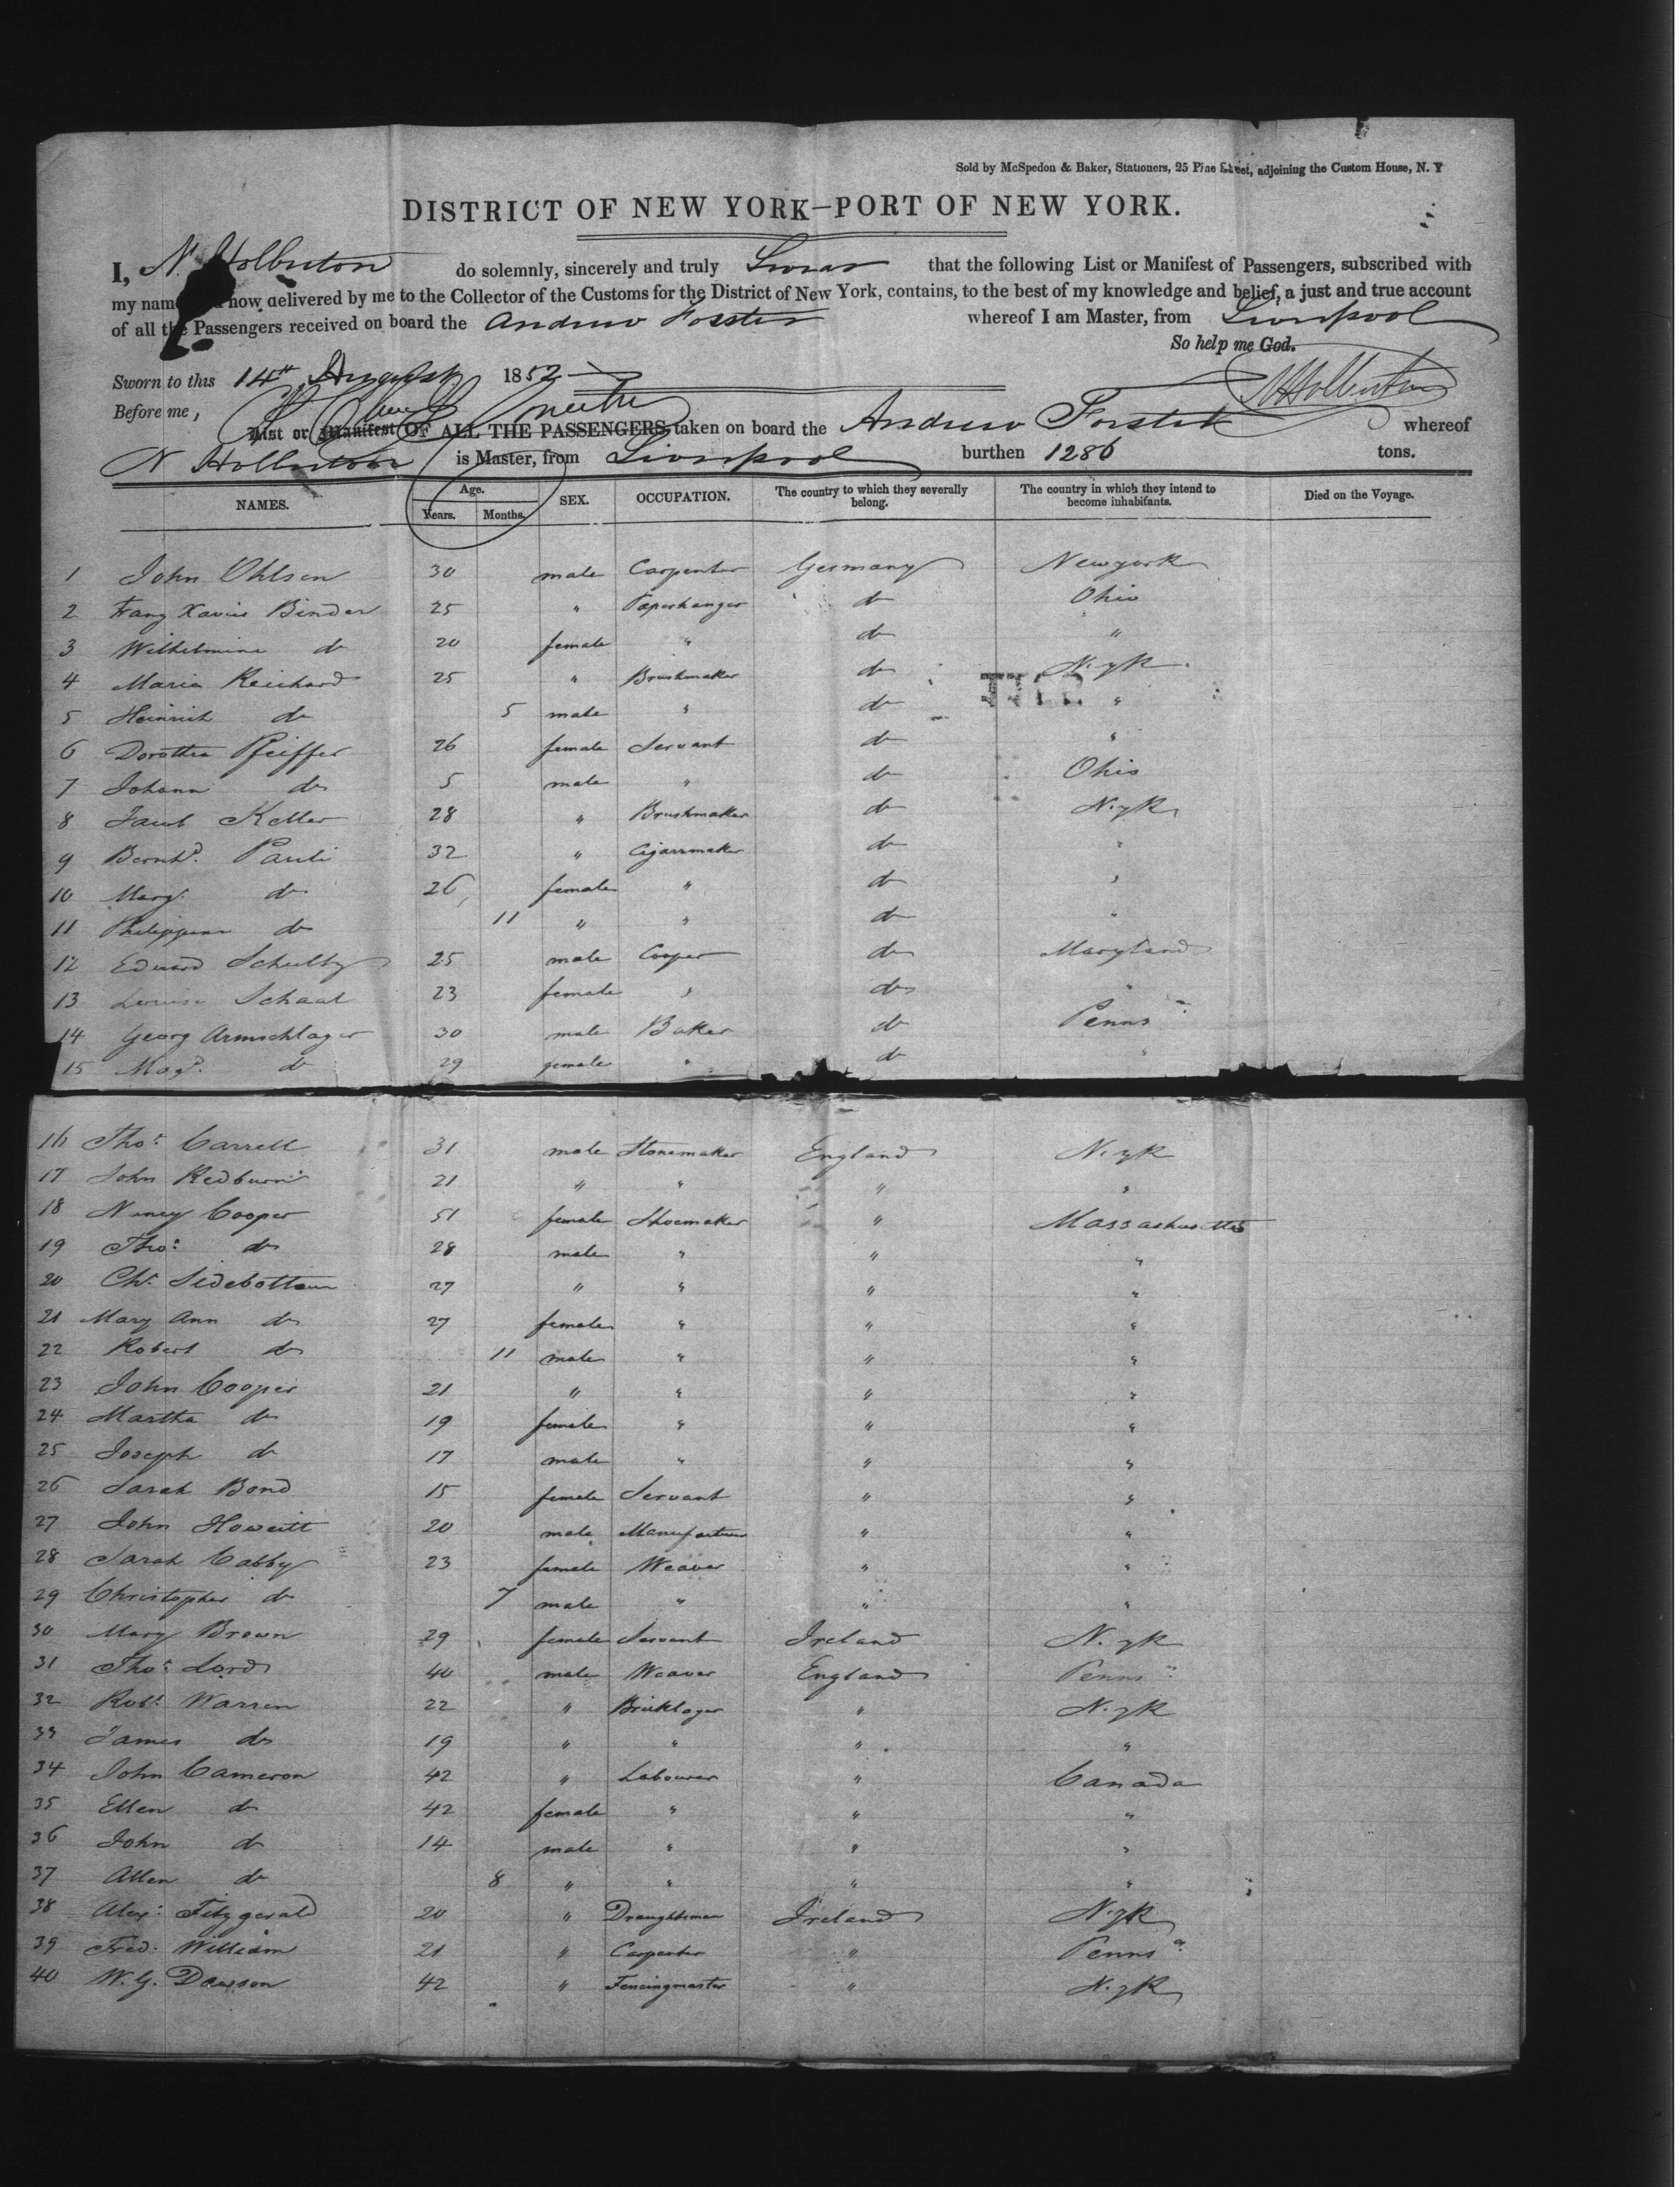 Sold by McSpedon & Baker, Stationers, 25 Pine Street, adjoining the Custom House, N. Y
DISTRICT OF NEW YORK—PORT OF NEW YORK.
I, N. Holberton do solemnly, sincerely and truly Swear that the following List or Manifest of Passengers, subscribed with
my name now delivered by me to the Collector of the Customs for the District of New York, contains, to the best of my knowledge and belief, a just and true account
of all the Passengers received on board the Andrew Forster whereof I am Master, from Liverpool
So help me God.
Sworn to this 14th August 1852 N Holberton
Before me,
List or Manifest OF ALL THE PASSENGERS taken on board the Andrew Forster whereof
N Holberton is Master, from Liverpool burthen 1286 tons.
NAMES. Age. Years. Months. SEX. OCCUPATION. The country to which they severally belong. The country in which they intend to become inhabitants. Died on the Voyage.
1 John Ohlsen 30 male Carpenter Germany Newyork
2 Franz Xavier Binder 25 " Paperhanger do Ohio
3 Wilhelmine do 20 female " do "
4 Maria Reichard 25 " Brushmaker do N.yk
5 Heinrich do 5 male " do "
6 Dorothea Pfeiffer 26 female Servant do "
7 Johann do 5 male " do Ohio
8 Jacob Keller 28 " Brushmaker do N.yk
9 Bernhd. Pauli 32 " Cigarrmaker do "
10 Margt. do 26 female " do "
11 do 11 " " do "
12 Eduard Schultz 25 male Cooper do Maryland
13 Louise Schaal 23 female " do "
14 Georg Armschlager 30 male Baker do Penns
15 Magd. do 29 female " do "
16 Thos. Carrell 31 male Stonemaker England N.yk
17 John Redburn 21 " " " "
18 Nancy Cooper 51 female Shoemaker " Massachusetts
19 Thos. do 28 male " " "
20 Chs. Sidebottom 27 " " " "
21 Mary Ann do 27 female " " "
22 Robert do 11 male " " "
23 John Cooper 21 " " " "
24 Martha do 19 female " " "
25 Joseph do 17 male " " "
26 Sarah Bond 15 female Servant " "
27 John Howeitt 20 male Manufacturer " "
28 Sarah Cabby 23 female Weaver " "
29 Christopher do 7 male " " "
30 Mary Brown 29 female Servant Ireland N.yk
31 Thos. Lord 40 male Weaver England Penns
32 Robt. Warren 22 " Bricklayer " N.yk
33 James do 19 " " " "
34 John Cameron 42 " Labourer " Canada
35 Ellen do 42 female " " "
36 John do 14 male " " "
37 Allen do 8 " " " "
38 Alexr. Fitzgerald 20 " Draughtsman Ireland N.yk
39 Fred. William 21 " Carpenter " Pennsa
40 W. G. Dawson 42 " Fencingmaster " N.yk